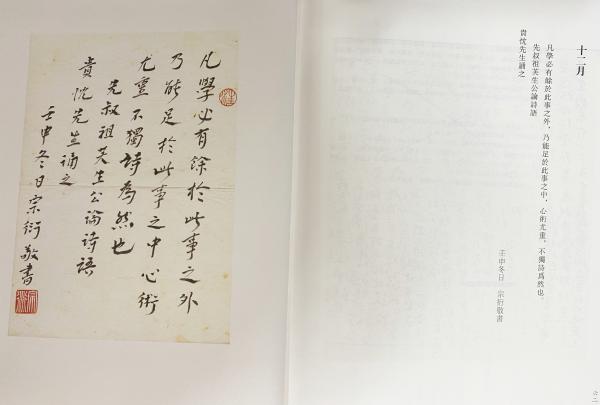 十二月
凡學必有餘於此事之外，乃能足於此事之中，心術尤重，不獨詩爲然也。
先叔祖芙生公論詩語
貴忱先生誦之
壬申冬日　宗衍敬書
六二
凡學必有餘於此事之外
乃能足於此事之中心術
尤重不獨詩為然也
先叔祖芙生公論詩語
貴忱先生誦之
壬申冬日宗衍敬書